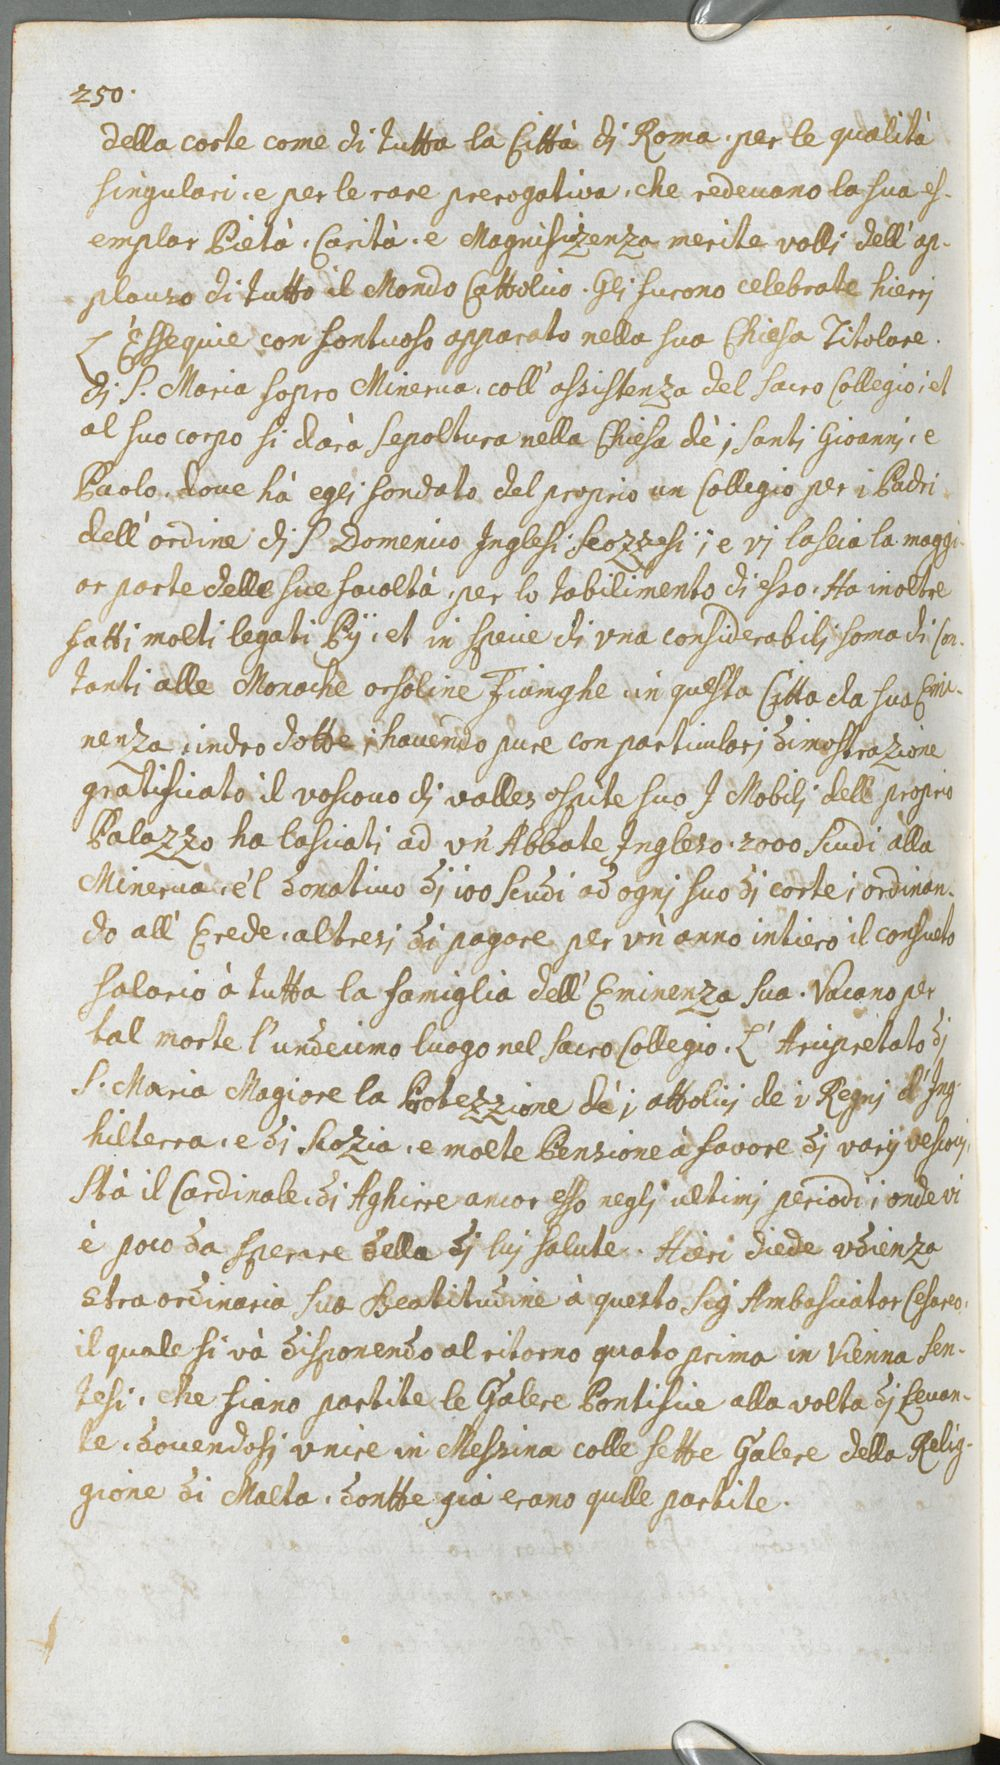 250.
della corte come di tutta la Città dj Roma. per le qualità
singulari. e per le rare prerogativa. che redevano la sua es-
emplar Pietà. Carità. e Magnifizenza merite vollj dell' ap-
plauzo di tutto il Mondo Cattolico. Gli furono celebrate hierj
L' Essequie con sontuoso apparato nella sua Chiesa Titolare.
dj S. Maria sopro Minerva. coll' assistenza del sacro Collegio; et
al suo corpo si darà sepoltura nella Chiesa dè j santj Gioannj. e
Paolo. dove hà eglj fondato del proprio un Collegio per i Padri
dell' ordine dj S Domenico Inglesi scozzesi; e vj lascia la maggi-
or parte delle sue facoltà. per lo tabilimento di esso. Ha inoltre
fatti molti legati Pÿ. et in specie di vna considerabilj soma di con-
tanti alle Monache orsoline Fiamghe in questa Citta da sua Emi-
nenza. indro dotte; havendo pure con particularj dimostrazione
gratificato il voscovo dj valles ospite suo I Mobilj dell proprio
Palazzo ha lasciatj ad vn' Abbate Inglezo. 2000 scudi alla
Minerva. e'l donativo dj 100 scudi ad ognj suo dj corte; ordinan-
do all' Erede. altresj di pagare per vn' anno intiero il consueto
salario à tutta la famiglia dell' Eminenza sua. Vacano per
tal morte l'undecimo luogo nel sacro Collegio. L' Aricipretato dj
S. Maria Magiore la Protezzione dè j attolicj de i Regnj d' Ing-
hilterra. e di Scozia. e molte Penzione à favore dj varÿ vescovj.
Stà il Cardinale. di Aghirre ancor esso neglj ultimj periodi; onde vi
è poco da sperare della dj luj salute. Hieri diede vdienza
straordinaria sua Beatitudine à questo Sig Ambasciator Cesareo.
il quale si và disponendo al ritorno quato prima in Vienna sen-
tesi. che siano partite le Galere Pontificie alla volta dj Levan-
te. dovendosj vnire in Messina colle sette Galere della Relig-
gione di Malta. dontte gia erano qulle partite.